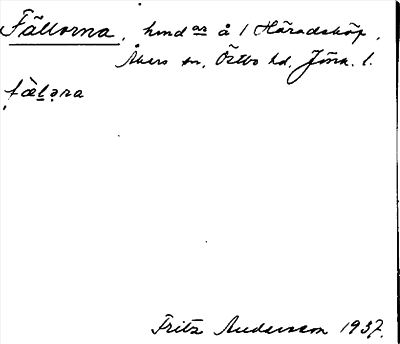 Fällorna, hmd ar å 1 Häradsköp,
Åkers sn, Östbo hd, Jönk. l.
fälǝra
Fritz Andersson 1937.